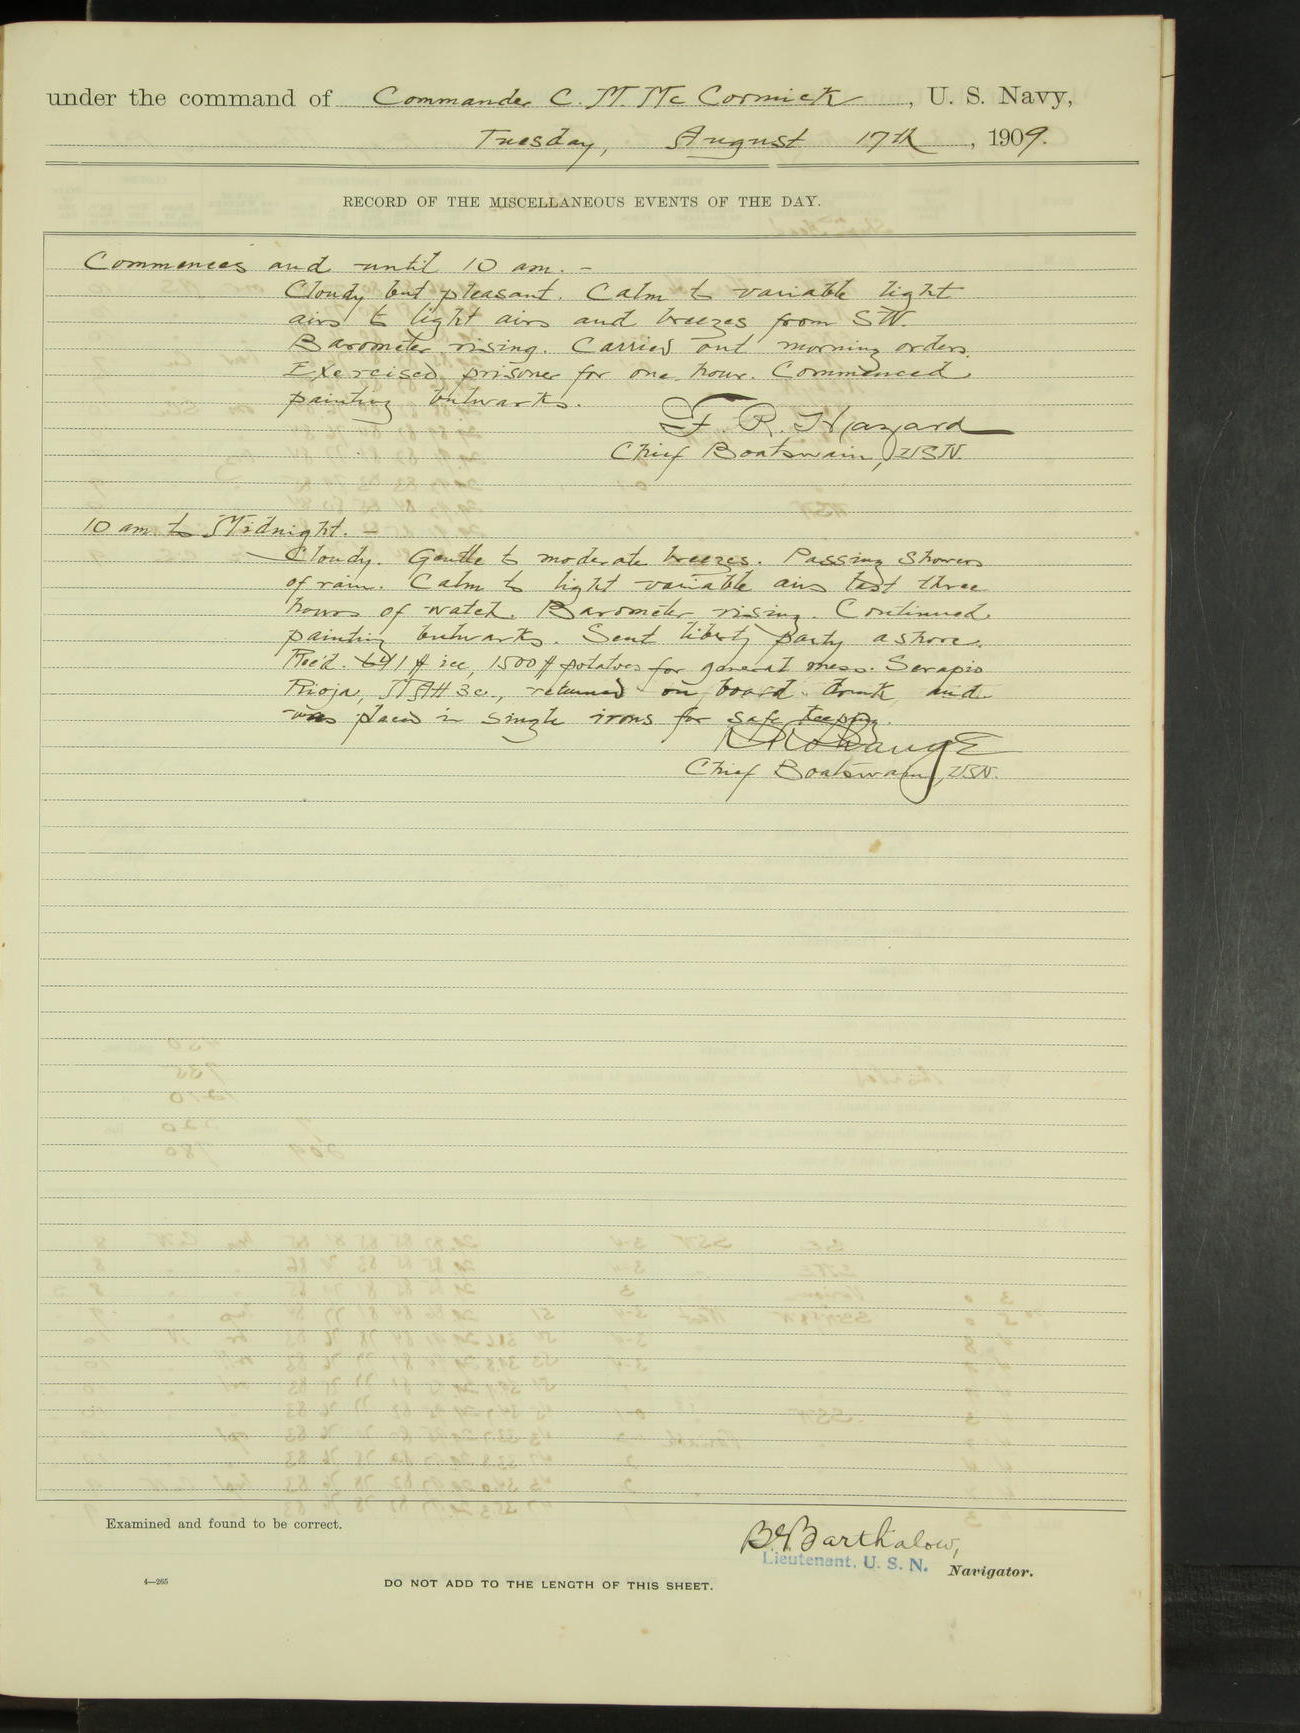 under the command of Commander C. M. McCormick, U. S. Navy,
Tuesday, August 17th, 1909.
RECORD OF THE MISCELLANEOUS EVENTS OF THE DAY.
Commences and until 10 am. -
Cloudy but pleasant. Calm to variable light
airs to light airs and breezes from SW.
Barometer rising. Carried out morning orders.
Exercised prisoner for one hour. Commenced
painting bulwarks.
F. R. Hazard
Chief Boatswain, USN.
10 am to Midnight. -
Cloudy. Gentle to moderate breezes. Passing showers
of rain. Calm to light variable airs last three
hours of watch. Barometer rising. Continued
painting bulwarks. Sent liberty party ashore.
Rec'd. # ice, 1500 # potatoes for general mess. Serapio
Rioja, 3c., returned on board drunk and
was placed in single irons for safe keeping.
Chief Boatswain, USN.
Examined and found to be correct.
Barthalow,
Lieutenant, U. S. N. Navigator.
4—265
DO NOT ADD TO THE LENGTH OF THIS SHEET.